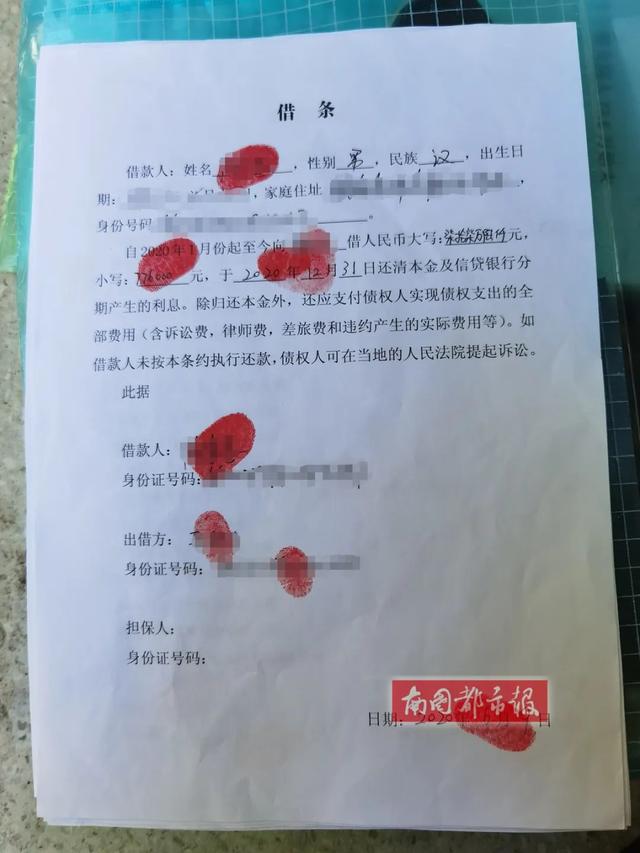 借 条
借款人：姓名，性别 男，民族 汉，出生日
期：，家庭住址，
身份号码。
自2020年1月份起至今向借人民币大写：元，
小写：776000元，于 2020 年 12 月 31 日还清本金及信贷银行分
期产生的利息。除归还本金外，还应支付债权人实现债权支出的全
部费用（含诉讼费，律师费，差旅费和违约产生的实际费用等）。如
借款人未按本条约执行还款，债权人可在当地的人民法院提起诉讼。
此据
借款人：
身份证号码：
出借方：
身份证号码：
担保人：
身份证号码：
南国都市报
日期：2020年日